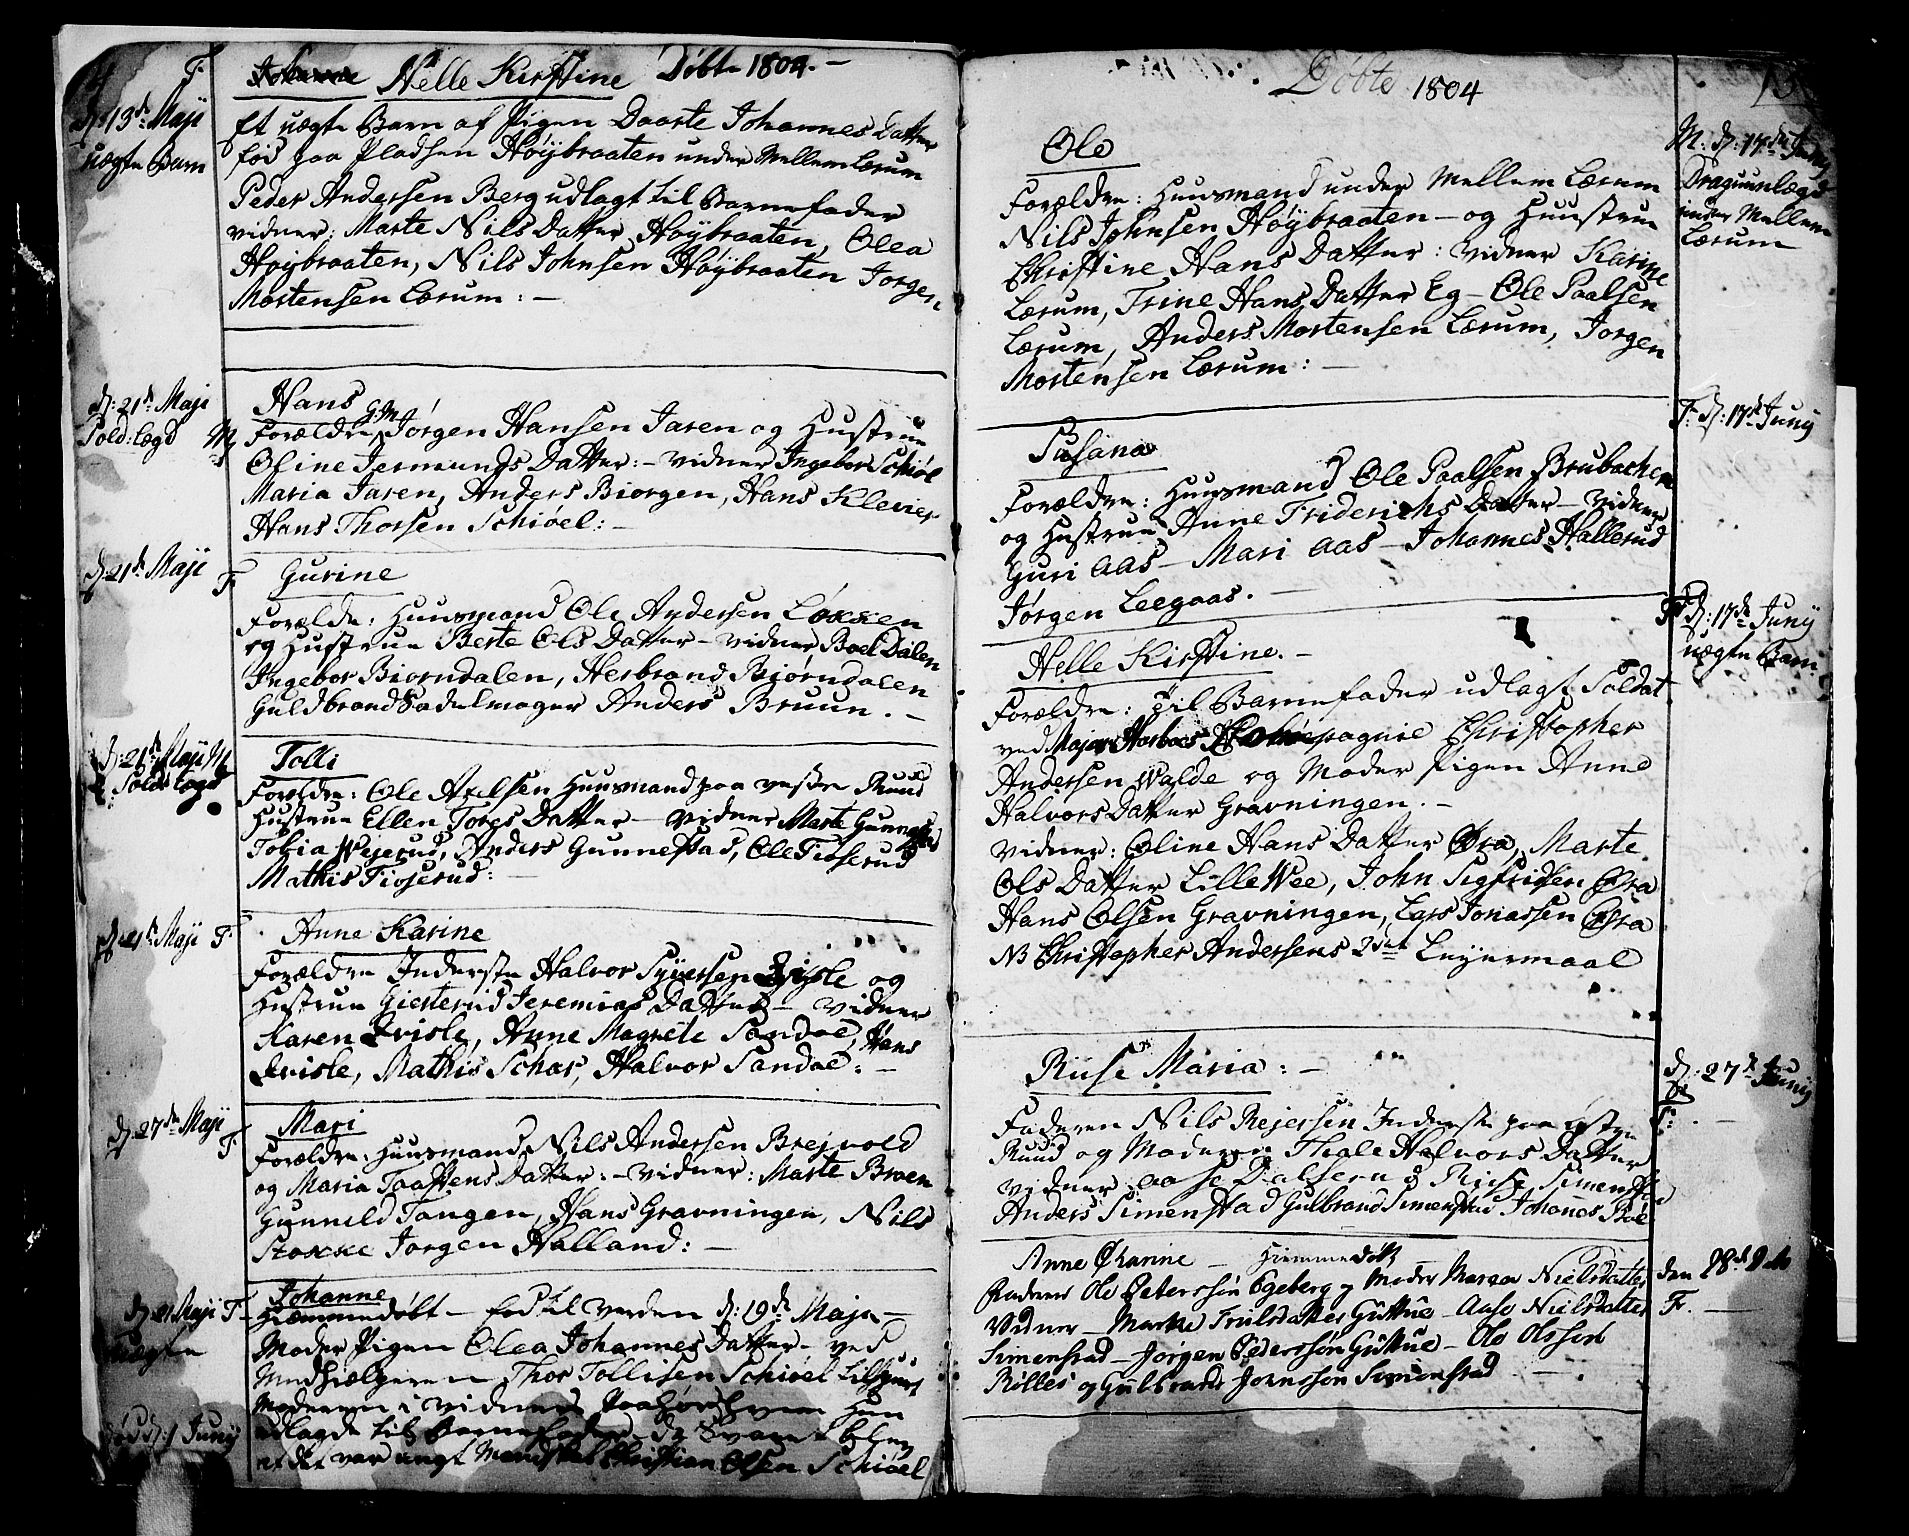 Johanne Helle Kirstine Døbte 1804. —
F.
d: 13de Maji
uægte Barn
Et uægte Barn af Pigen Daarte Johannes Datter
fød paa Pladsen Høÿbraaten under Mellem Lærum
Peder Andersen Berg udlagt til Barnefader
vidner: Marte Nils Datter Høÿbraaten, Olea
Høÿbraaten, Nils Johnsen Høÿbraaten Jorgen
Mortensen Lærum: —
d: 21de Maji
Sold: Lægd M
Hans
Forældre G. M. Jørgen Hansen Jaren og Hustrue
Oline Jermunds Datter: — vidner Ingebor Schiøl
Maria Jaren, Anders Biorgen, Hans Klever
Hans Thorsen Schiøel: —
d: 21de Maji F.
Gurine
Foræld: Huusmand Ole Andersen Løkken
og Hustrue Berte Ols Datter — vidner Boel Dalen
Ingebor Biorndalen, Herbrand Biørndalen
Guldbrand Sadelmager Anders Bruun. —
d: 21de Maji M
Sold: Lægd
Tolli
Forældre: Ole Axelsen Huusmand paa vestre Ruud
Hustrue Ellen Tores Datter — vidner Marte Gunnestad
Tobia Wejerud, Anders Gunnestad, Ole Tioserud
Mathis Tioserud: —
d: 21de Maji F.
Anne Karine
Forældre Inderste Halvor Syversen Qvisle og
Hustrue Gierterud Jeremias Datter — vidner
Karen Qvisle, Anne Magrete Sandoe, Hans
Qvisle, Mathis Schar, Halvor Sandoe: —
d: 27de Maji F.
Mari
Forældre: Huusmand Nils Andersen Brejvold
og Maria Taastens Datter: — vidner: Marte Braen
Gunneld Tangen, Hans Gravningen, Nils
Stokke Jorgen Halland: —
d: 21 Maji F.
uægte
Johanne
Hiemmedøbt — fød til verden d: 19de Maji —
Moder Pigen Olea Johannes Datter — ved
Medhielperen Thor Tollisen Schiøel
Moderen i vidners Paahør hvem hun
udlagde til Barnefader — da Svaret blev
at det var ungt Mandskab Christian Olsen Schiøel
død d: 1 Junÿ
Døbte 1804
Ole
M: d: 17de Junÿ
Dragounlægd
under Mellem
Lærum
Forældre: Huusmand under Mellem Lærum
Nils Johnsen Høÿbraaten — og Huustrue
Christine Hans Datter: vidner Karine
Lærum, Trine Hans Datter Eg — Ole Paalsen
Lærum, Anders Mortensen Lærum, Jorgen
Mortensen Lærum: —
F. d: 17de Junÿ
Susana
Forældre: Huusmand Ole Paalsen Brubachen
og Hustrue Anne Friderichs Datter — vidner
Guri Aas — Mari Aas — Johannes Hallerud
Jørgen Leegaas. —
F. d: 17de Junÿ
uægte Barn
Helle Kirstine. —
Forældre: Til Barnefader udlagt Soldat
ved Major Christopher
Andersen Walde og Moder Pigen Anne
Halvors Datter Gravningen. —
vidner: Oline Hans Datter Øra, Marte
Ols Datter Lille Wee, John Sigfridsen Øra
Hans Olsen Gravningen, Lars Jonassen Øra
NB Christopher Andersens 2det Leyermaal
d: 27de Junÿ
F: —
Ruse Maria: —
Faderen Nils Rejersen Inderste paa østre
Ruud og Moderen Thale Halvors Datter
vidner Aase Dalseru & Ruse Simenstad
Anders Simenstad Gulbrand Simenstad Johanes Boe
den 28de Dito
F. —
Anne Karine — Hiemmedøbt
Faderen Ole Peterssøn Egeberg og Moder Maren Nielsdatter
Vidner — Marte Trulsdatter Guttue — Aase Nielsdatter
Simenstad — Jørgen Pederssøn Guttue — Ole Olssen
Rilles og Gulbrand Jornssøn Simenstad —